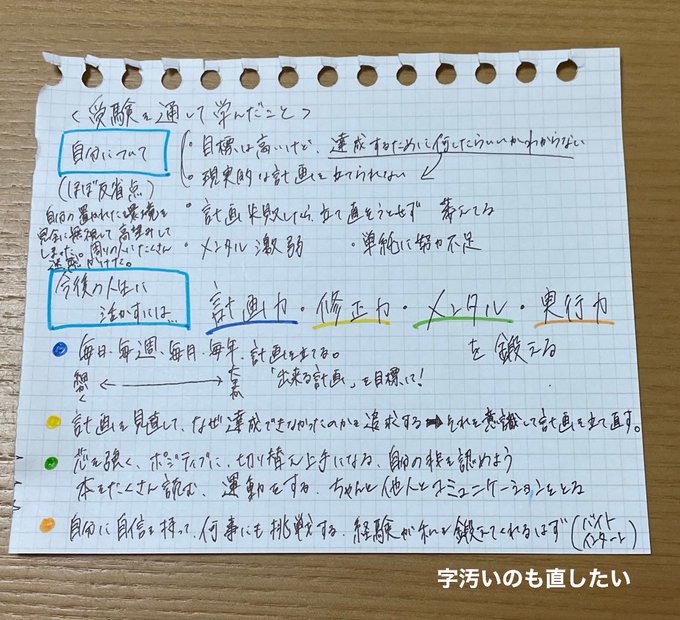 <受験を通して学んだこと>
自分について
(ほぼ反省点)
・目標は高いけど、達成するために何したらいいかわからない
・現実的な計画を立てられない
自分の置かれた環境を
完全に無視して高望みして
しまった。周りの人にたくさん
迷惑かけた。
・計画失敗したら、立て直そうとせず 萎えてる
・メンタル激弱 ・単純に努力不足
今後の人生に
活かすには…
計画力・修正力・メンタル・実行力
を鍛える
毎日、毎週、毎月、毎年、計画を立てる。
細かく ⟷ 大まか 「出来る計画」を目標に!
計画を見直して、なぜ達成できなかったのかを追求する→それを意識して計画を立て直す。
芯を強く、ポジティブに、切り替え上手になる、自分の非を認めよう
本をたくさん読む、運動をする、ちゃんと他人とコミュニケーションをとる
自分に自信を持って、何事にも挑戦する、経験が私を鍛えてくれるはず(バイト
インターン)
字汚いのも直したい